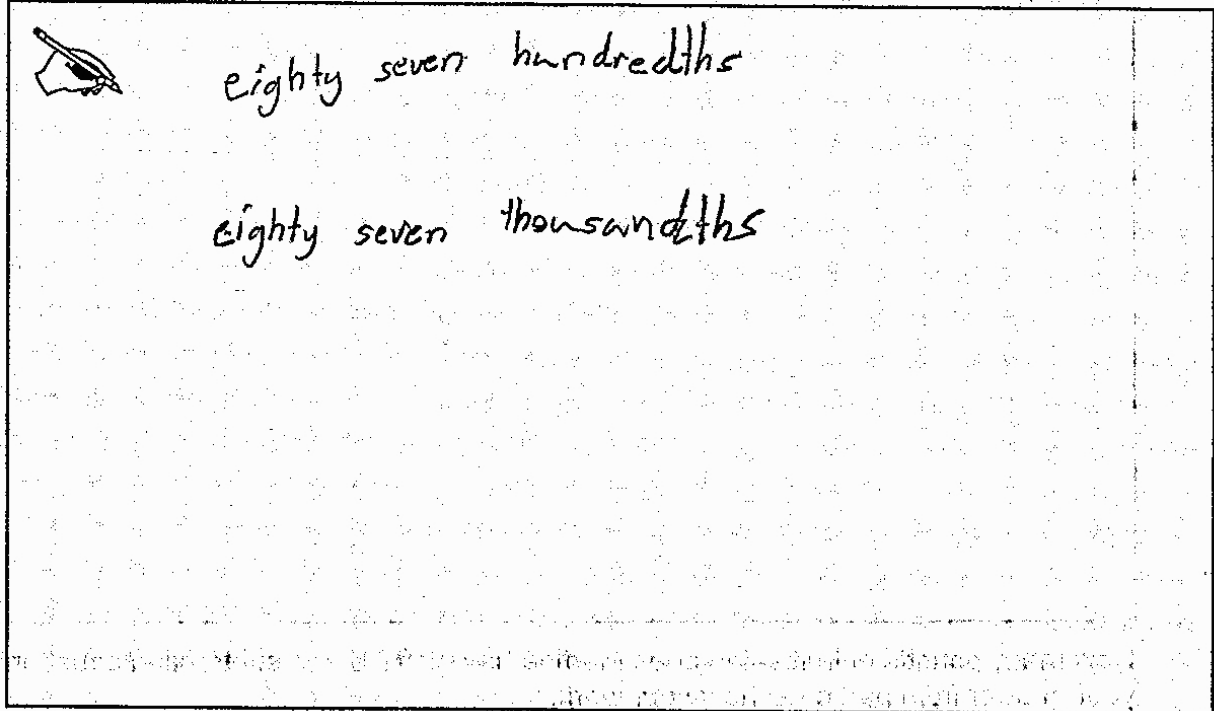 eighty seven hundredths
eighty seven thousandths